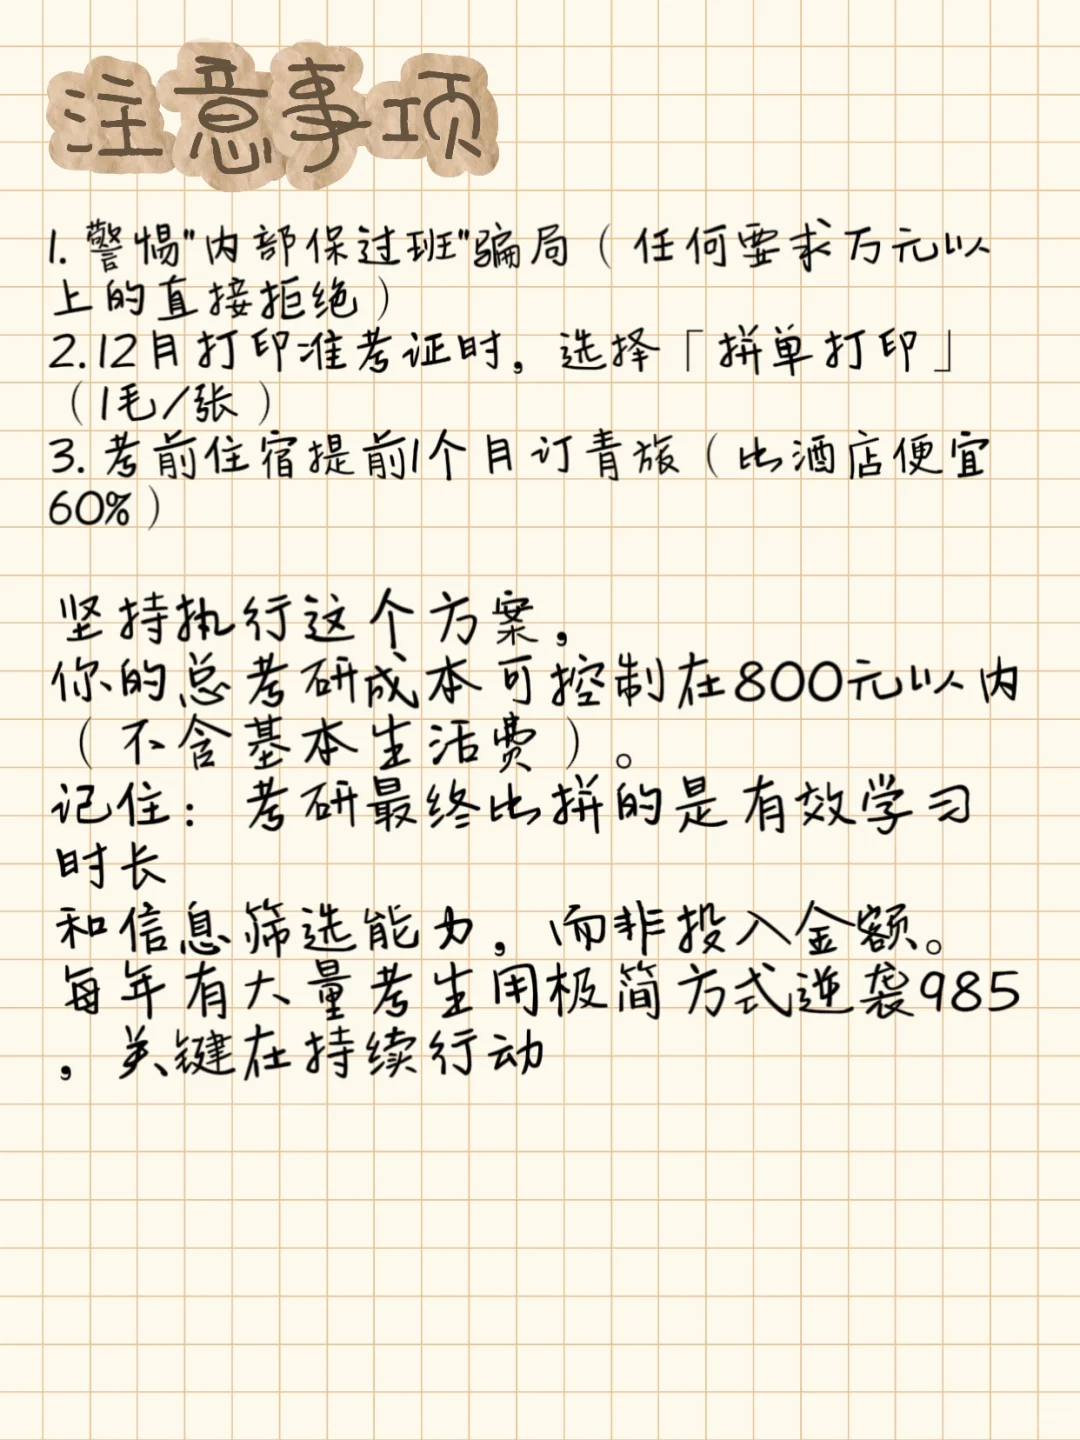 注意事项
1. 警惕"内部保过班"骗局（任何要求万元以
上的直接拒绝）
2.12月打印准考证时，选择「拼单打印」
（1毛/张）
3. 考前住宿提前1个月订青旅（比酒店便宜
60%）
坚持执行这个方案，
你的总考研成本可控制在800元以内
（不含基本生活费）。
记住：考研最终比拼的是有效学习
时长
和信息筛选能力，而非投入金额。
每年有大量考生用极简方式逆袭985
，关键在持续行动